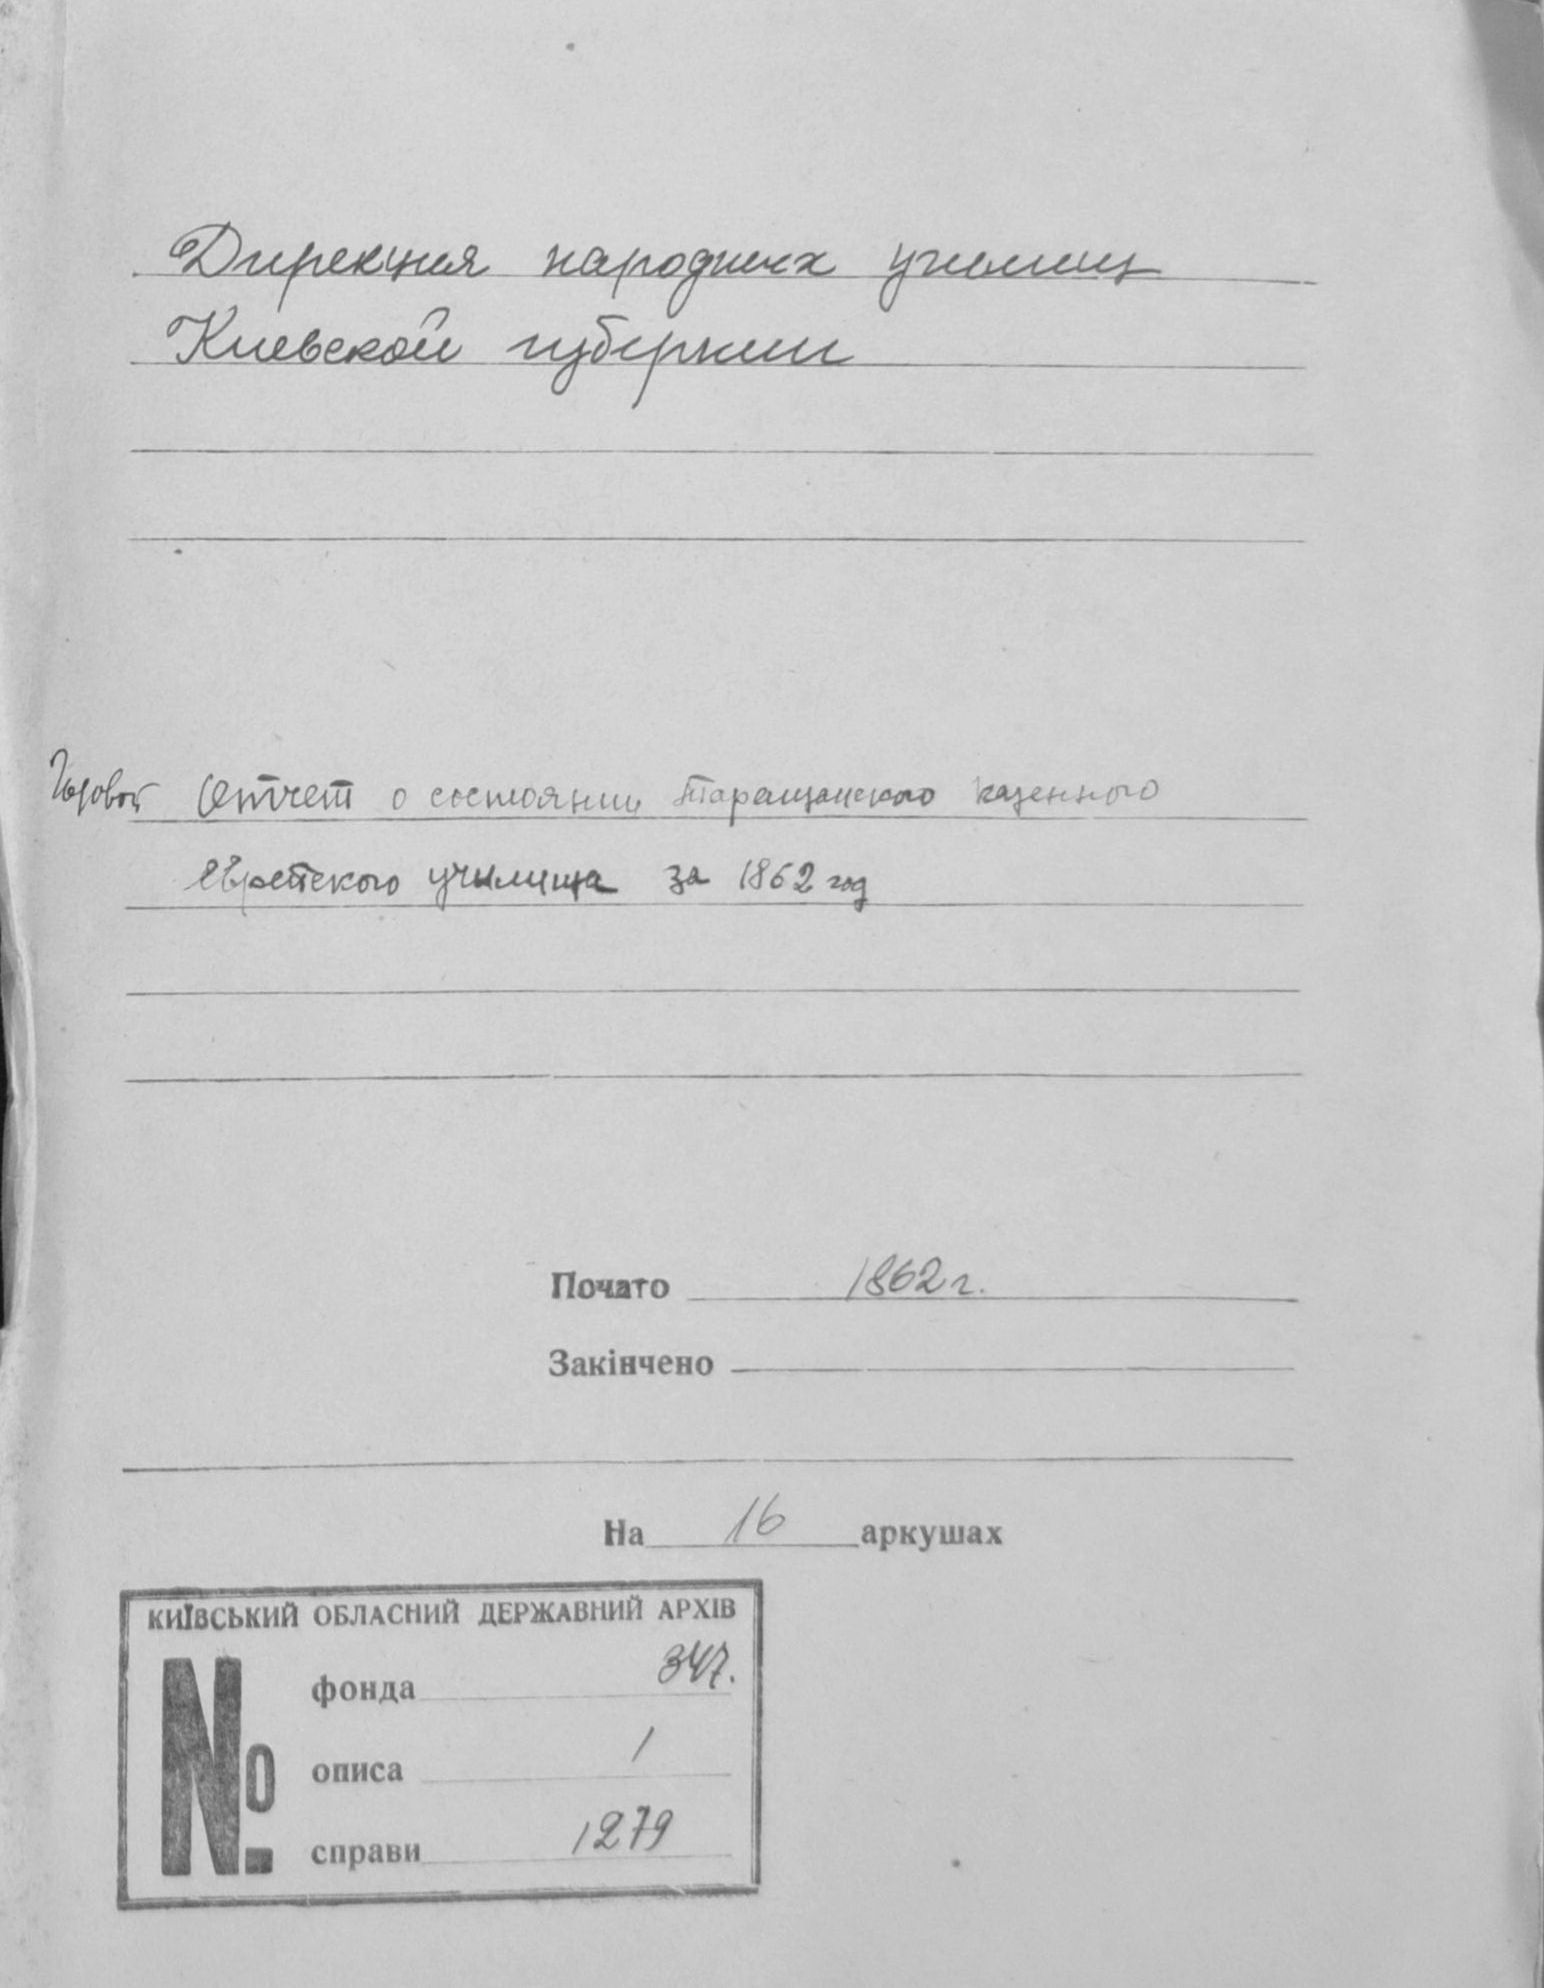 Дирекция народных училищ
Киевской губернии
Годовой Отчет о состоянии Таращанского казенного
еврейского училища за 1862 год
Почато 1862 г.
Закінчено
На 16 аркушах
КИЇВСЬКИЙ ОБЛАСНИЙ ДЕРЖАВНИЙ АРХІВ
№ фонда 347.
описа 1
справи 1279